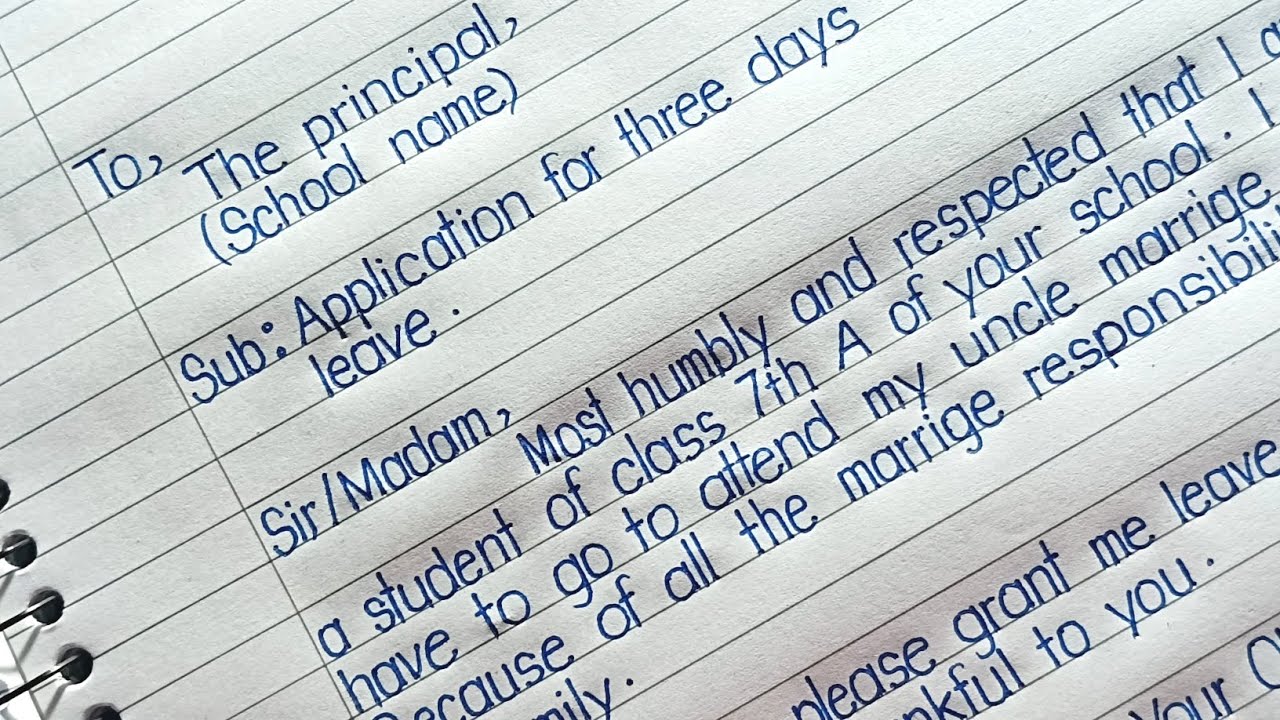 To,
The principal,
(School name)
Sub: Application for three days
leave.
Sir/Madam,
Most humbly and respected that I
a student of class 7th A of your school. I
have to go to attend my uncle marrige
Because of all the marrige
please grant me leave
to you.
Your